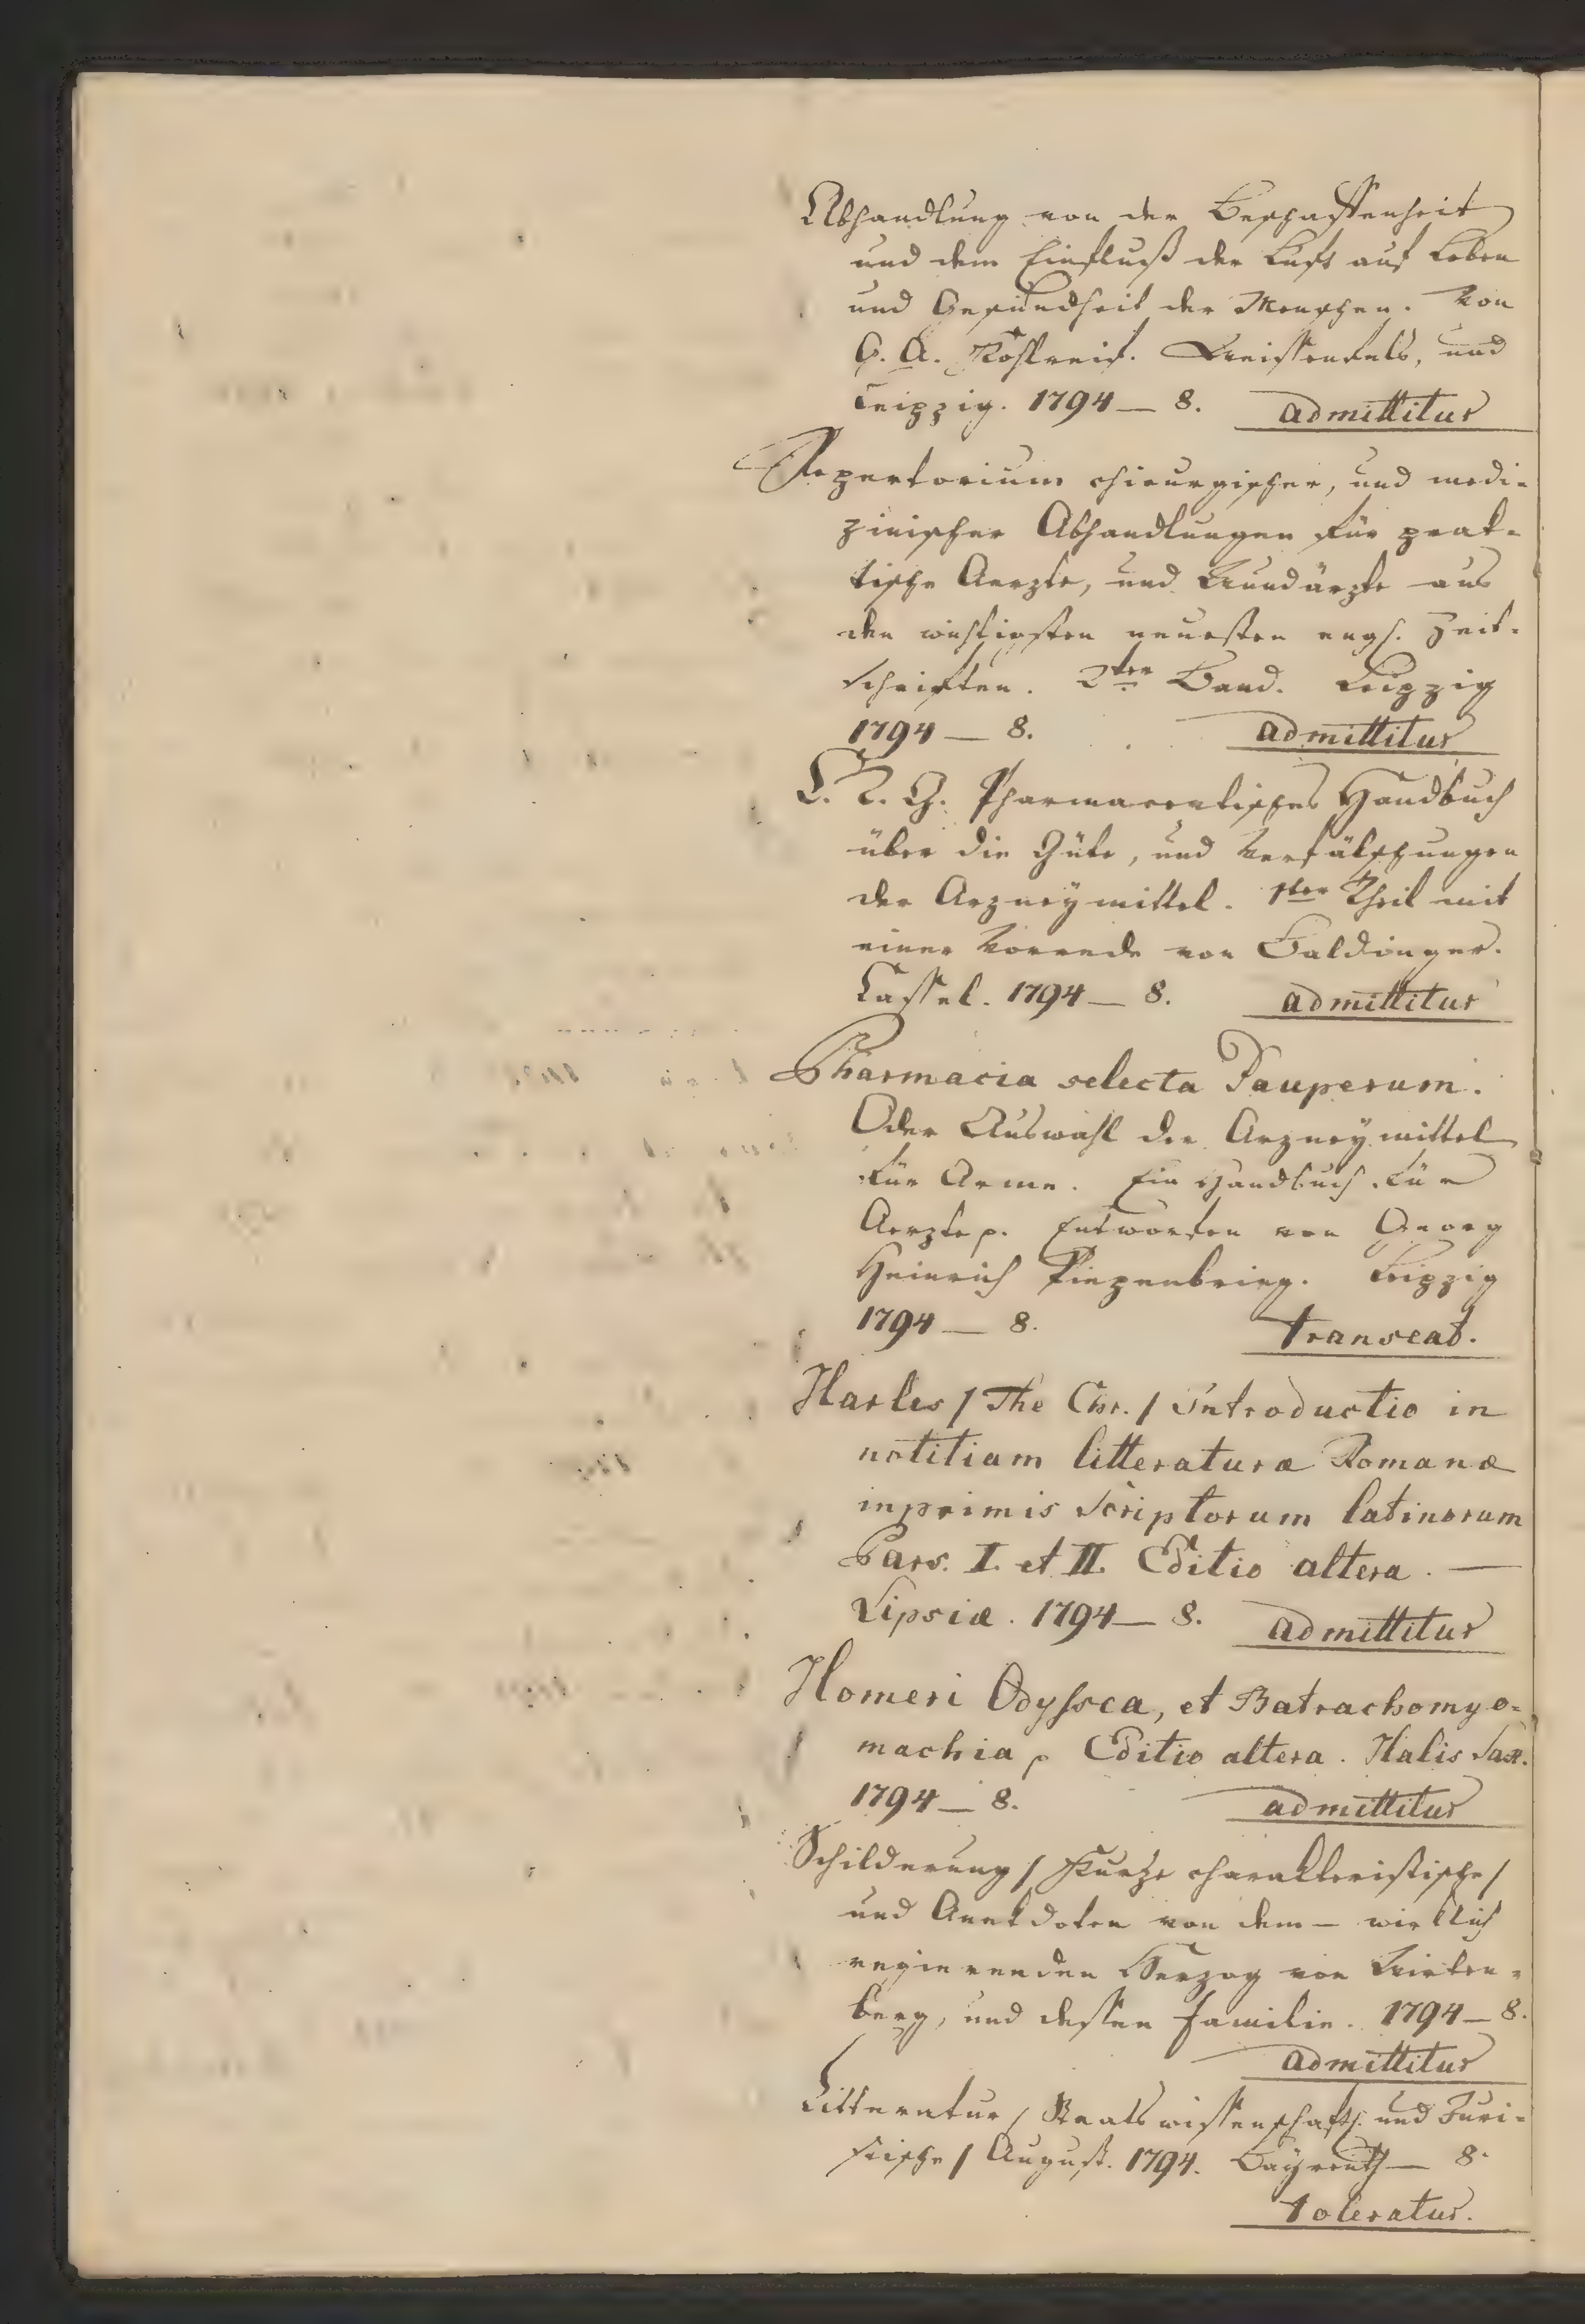 Abhandlung von der Beschaffenheit
und dem Einfluß der Luft auf Leben
und Gesundheit der Menschen. Von
G. A. Kohlreif. Weissenfels, und
Leipzig. 1794 — 8. admittitur
Repertorium chirurgischer, und medi-
zinischer Abhandlungen für prak-
tische Aerzte, und Wundärzte aus
den wichtigsten neuesten engl. Zeit-
schriften. 2ter Band. Leipzig
1794 — 8. admittitur
Pharmaceutisches Handbuch
über die Güte, und Verfälschungen
der Arzneymittel. 1ter Theil mit
einer Vorrede von Baldinger.
Cassel. 1794 — 8. admittitur
Pharmacia selecta Pauperum.
Oder Auswahl der Arzneymittel
für Arme. Ein Handbuch für
Aerzte p. Entworfen von Georg
Heinrich Piepenbring. Leipzig
1794 — 8. transeat.
Harles / The Chr. / Introductio in
notitiam litteraturæ Romanæ
inprimis Scriptorum latinorum
Pars. I. et II. Editio altera. —
Lipsiæ. 1794 — 8. admittitur
Homeri Odyssea, et Batrachomyo-
machia p Editio altera. Halis Sax.
1794 — 8. admittitur
Schilderung / Kurze charakteristische /
und Anekdoten von dem — wirklich
regierenden Herzog von Wirten-
berg, und dessen Familie. 1794 — 8.
admittitur
Litteratur / Staatswissenschaftl. und Juri-
stische / August. 1794. Bayreuth — 8.
toleratur.